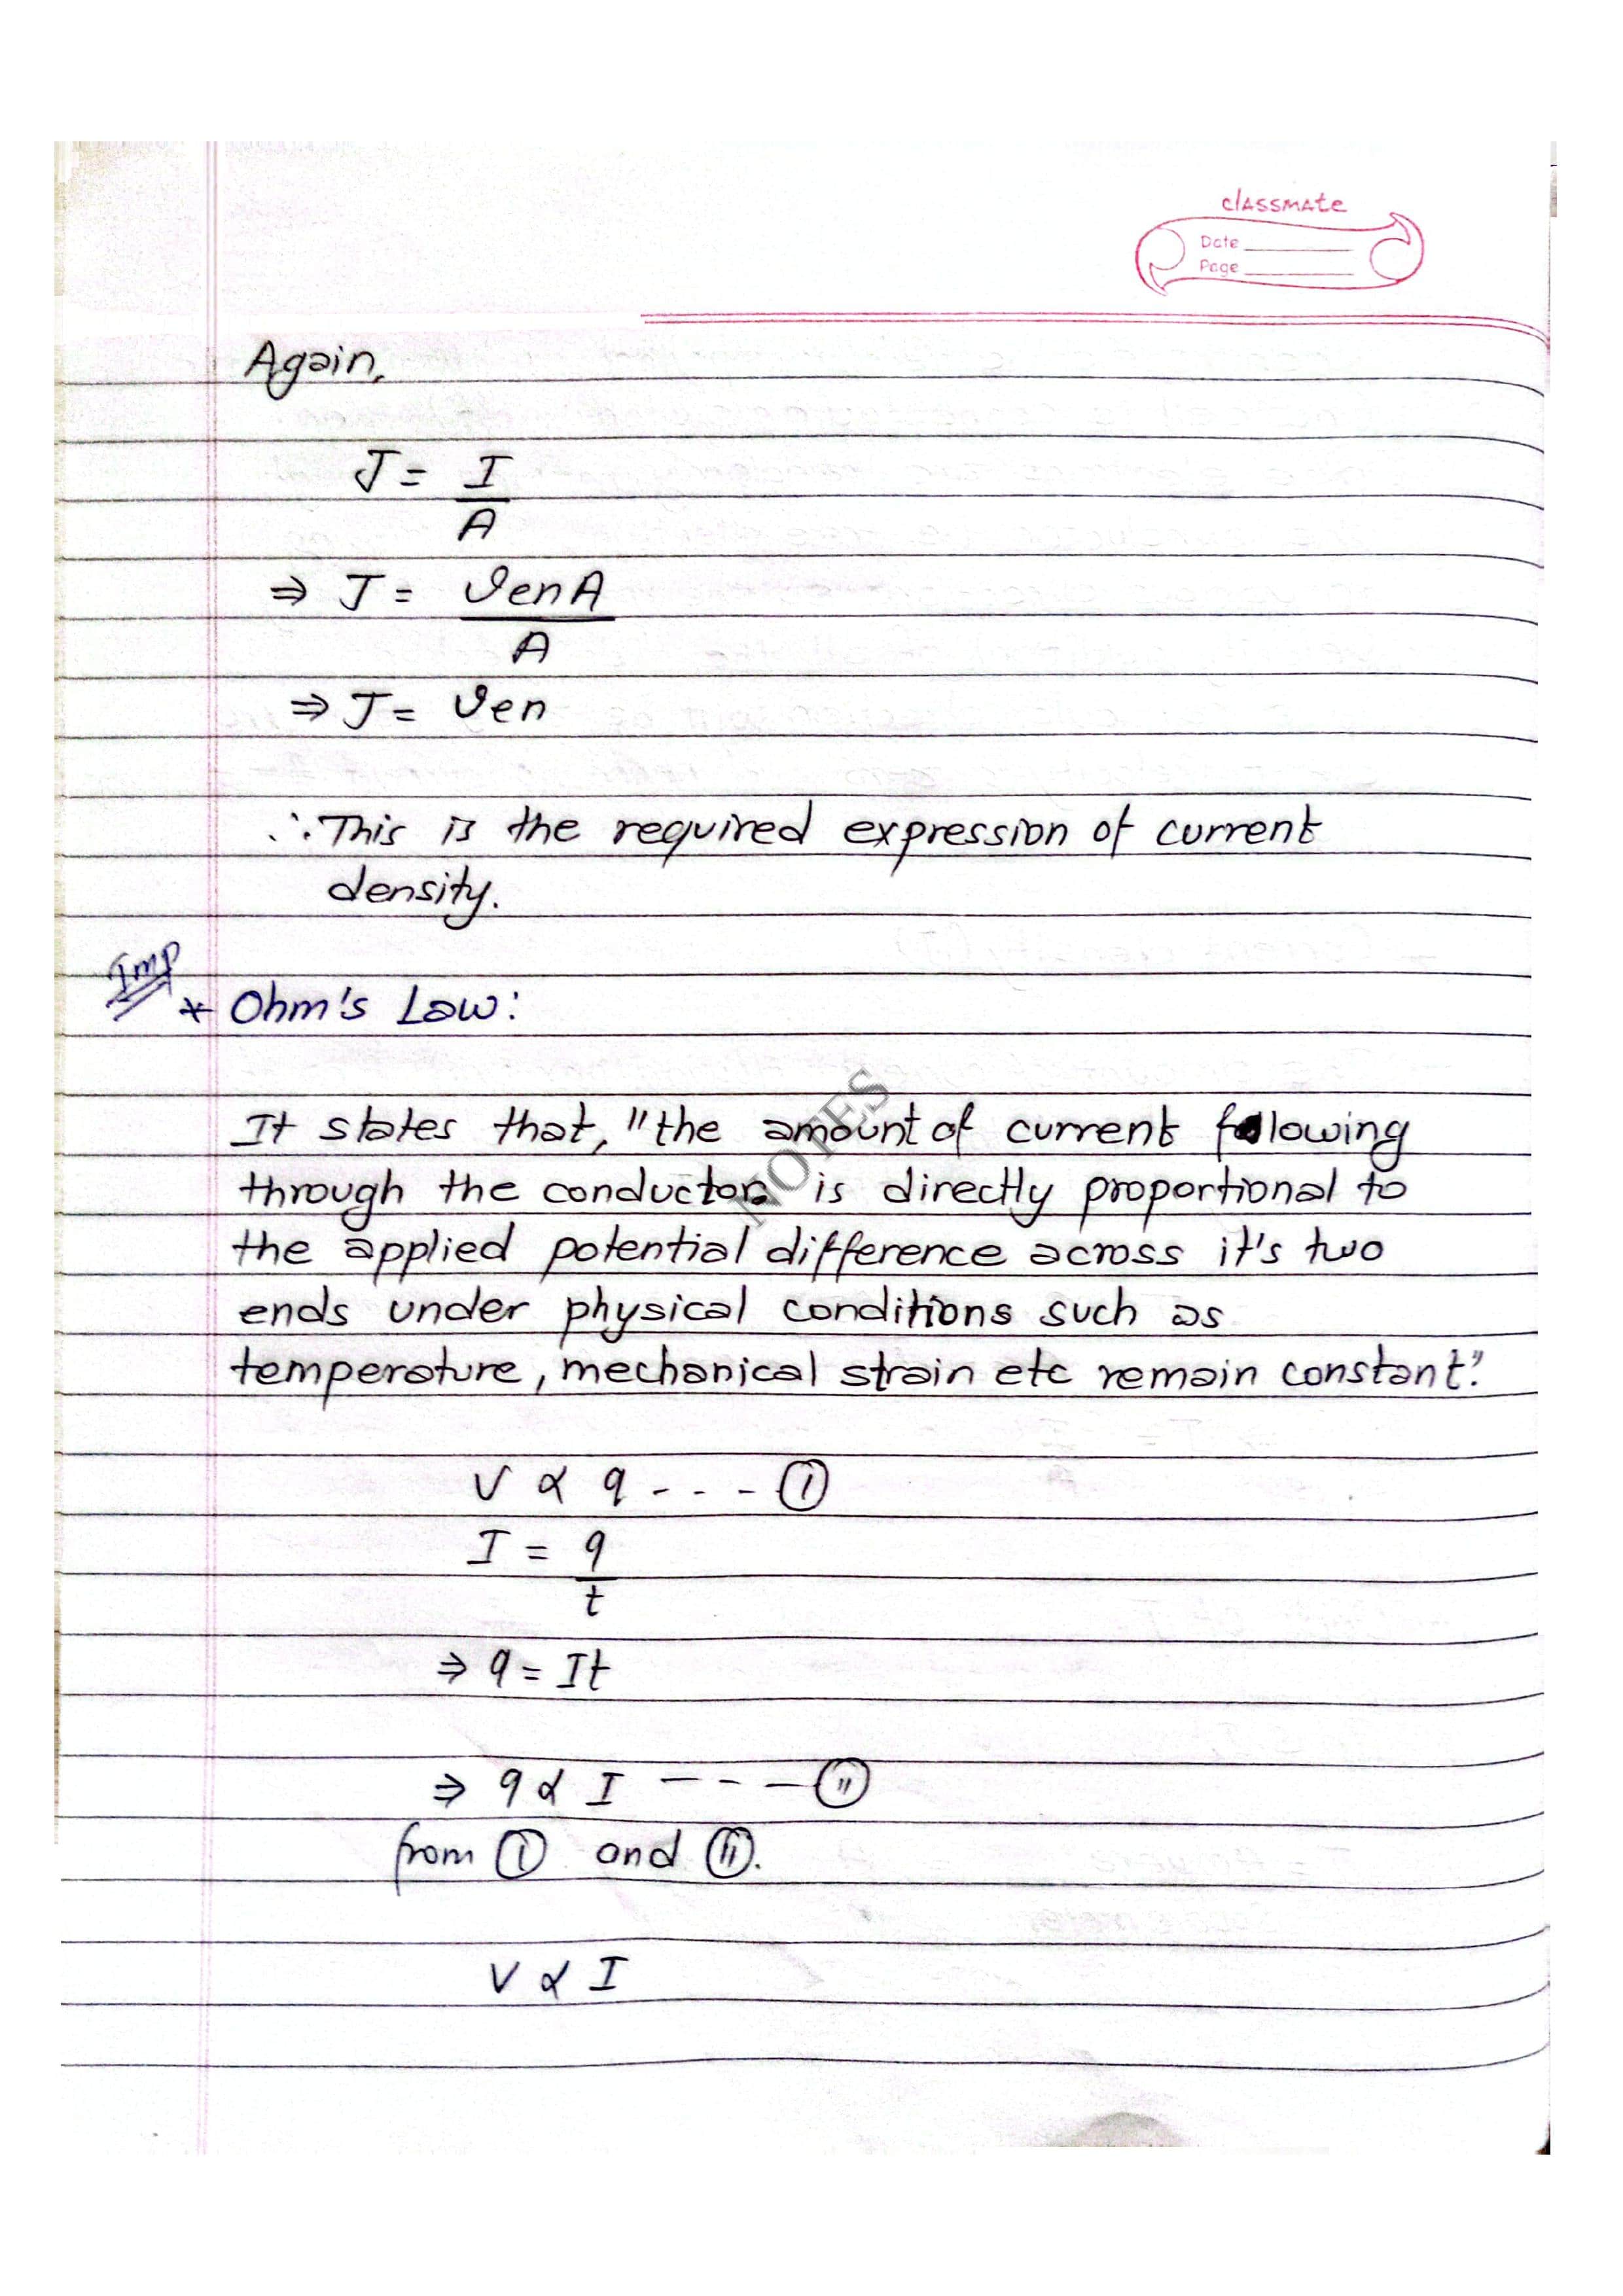 classmate
Date
Page
Again,
J = I
A
⇒ J = venA
A
⇒ J = ven
∴ This is the required expression of current
density.
Imp
* Ohm's Law:
NOTES
It states that, "the amount of current flowing
through the conductor is directly proportional to
the applied potential difference across it's two
ends under physical conditions such as
temperature, mechanical strain etc remain constant."
V ∝ q - - - (i)
I = q
t
⇒ q = It
⇒ q ∝ I - - - (ii)
from (i) and (ii).
V ∝ I